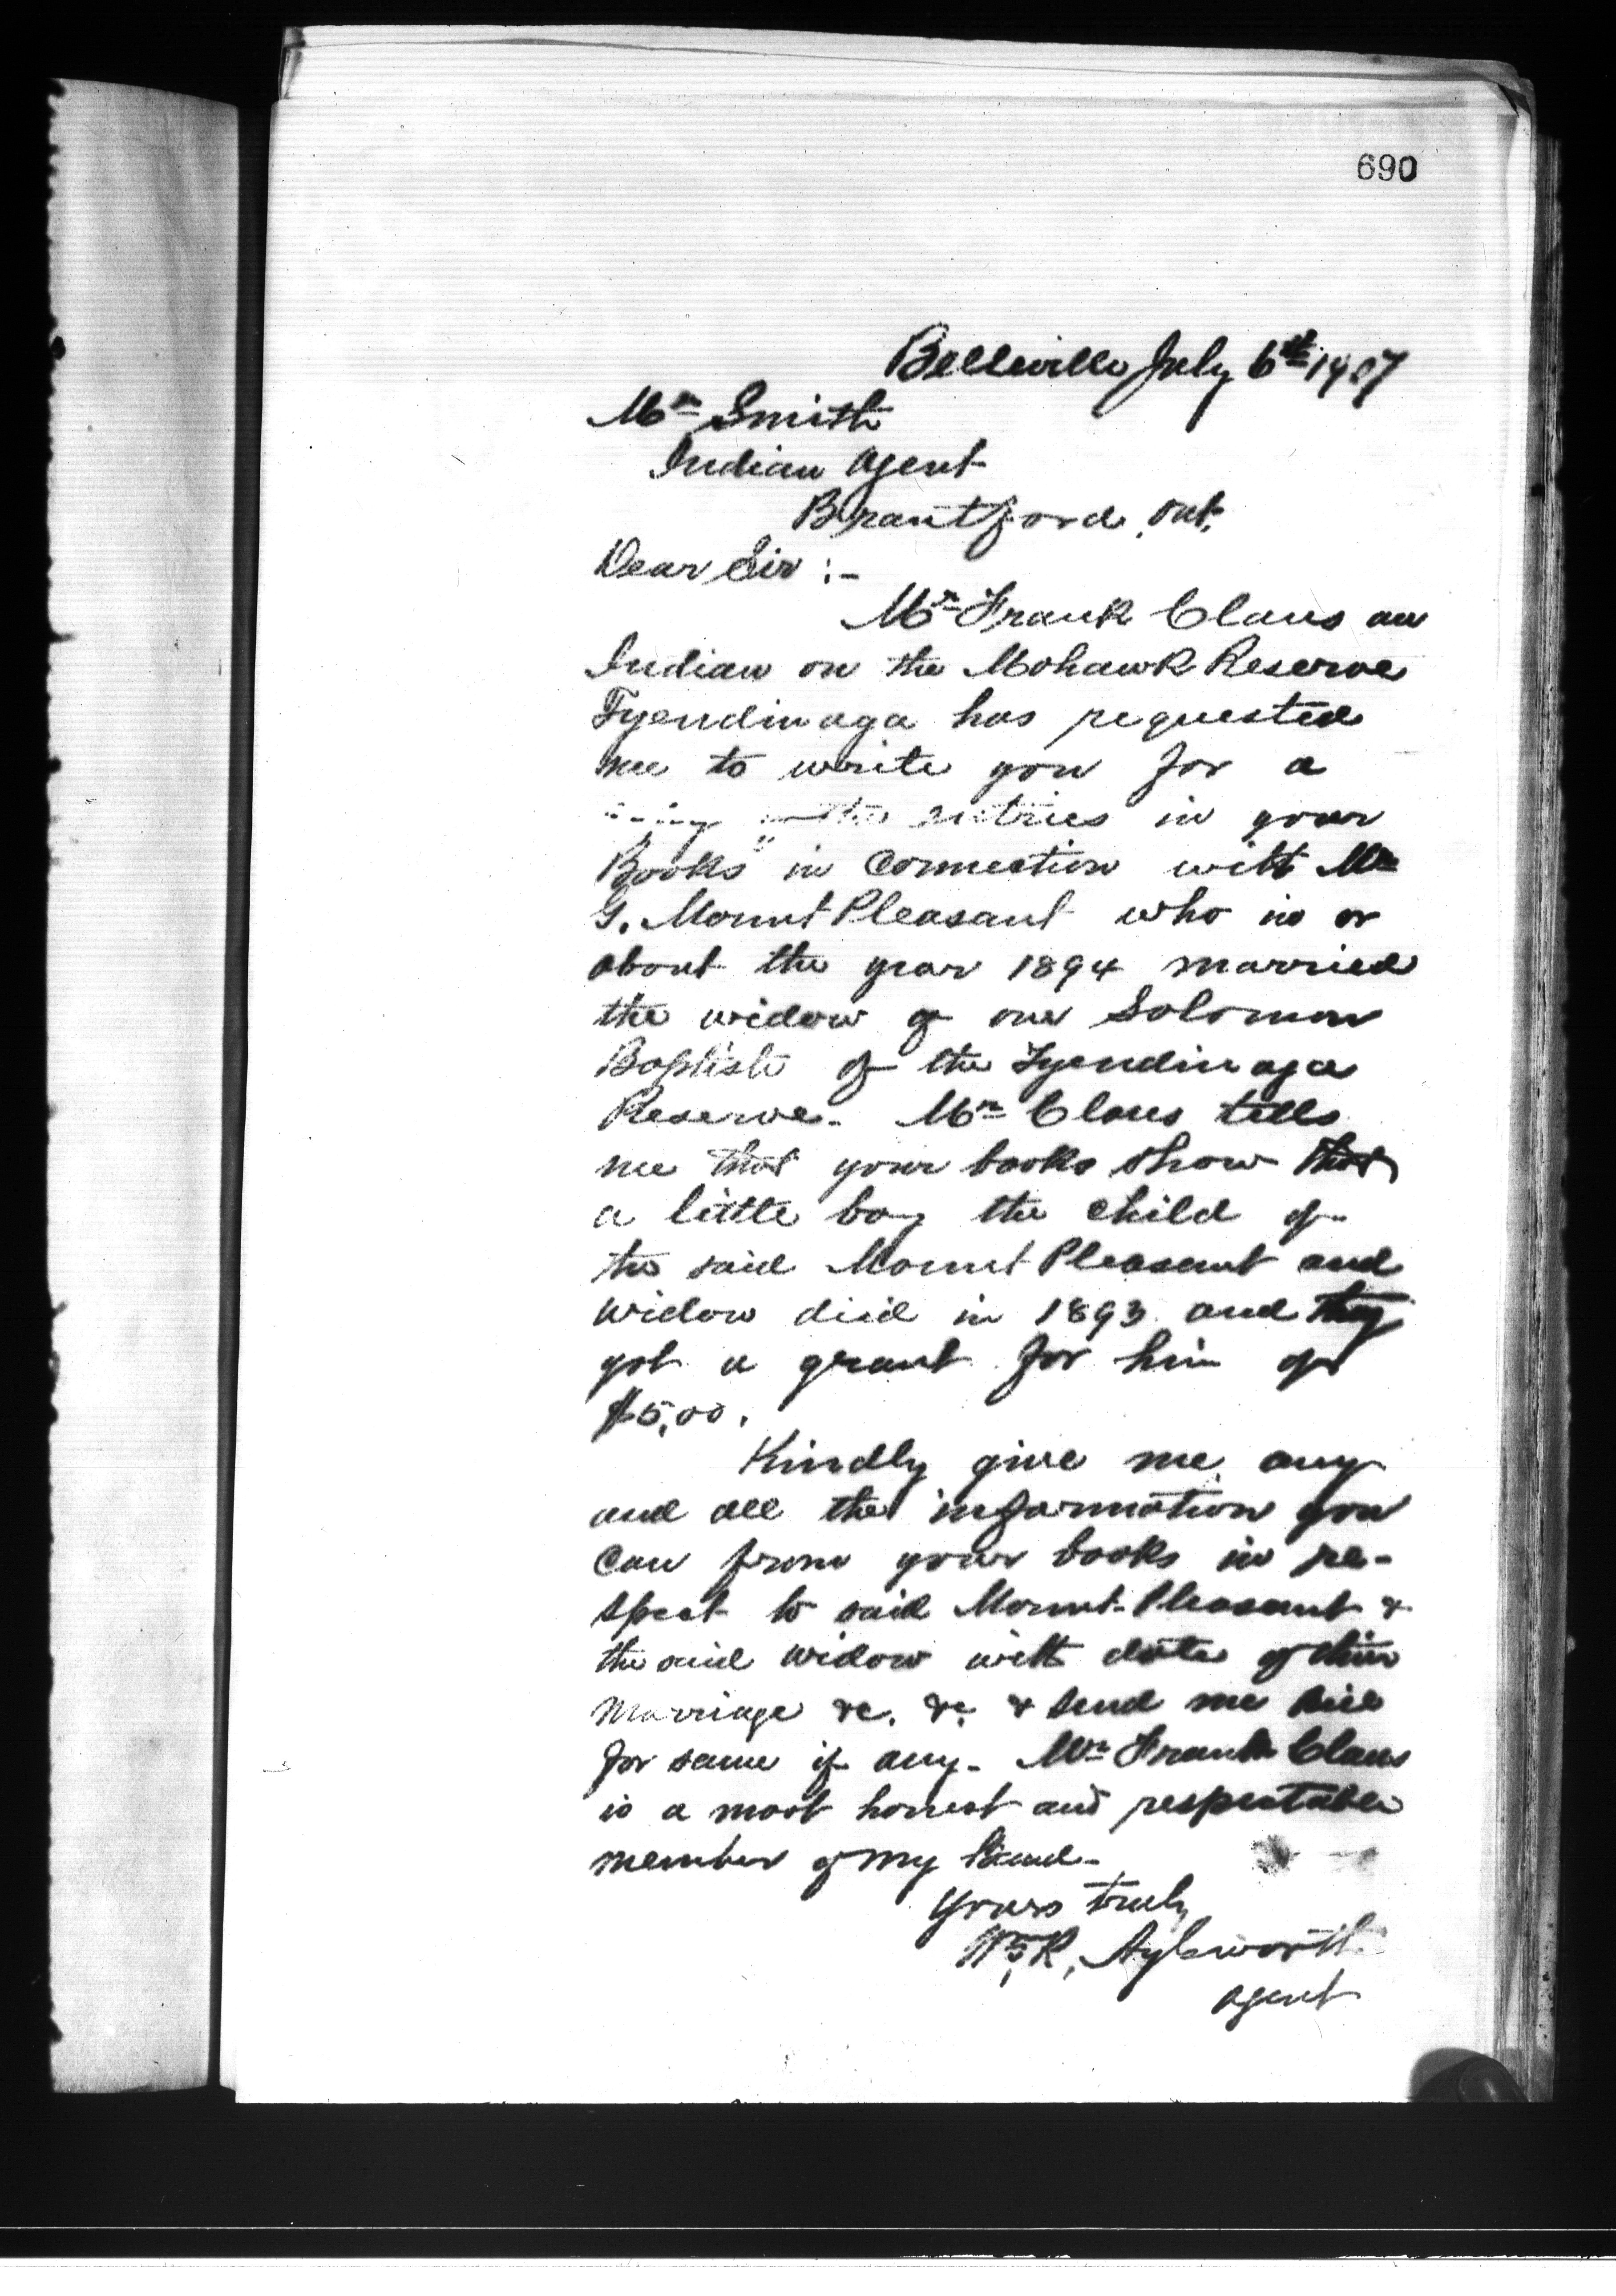 690
Belleville July 6th 1907
Mr Smith
Indian Agent
Brantford, Ont.
Dear Sir :-
Mr Frank Claus an
Indian on the Mohawk Reserve
Tyendinaga has requested
me to write you for a
entries in your
Books" in connection with Mr
G. Mount Pleasant who in or
about the year 1894 married
the widow of one Solomon
Baptiste of the Tyendinaga
Reserve. Mr Claus tells
me that your books show that
a little boy the child of
the said Mount Pleasant and
widow died in 1893 and they
got a grant for him of
$5.00.
Kindly give me any
and all the information you
can from your books in re-
spect to said Mount-Pleasant &
the said widow with date of their
Marriage &c. &c. & send me bill
for same if any. Mr Frank Claus
is a most honest and respectable
member of my Band.
Yours truly
Wm R. Aylsworth
Agent